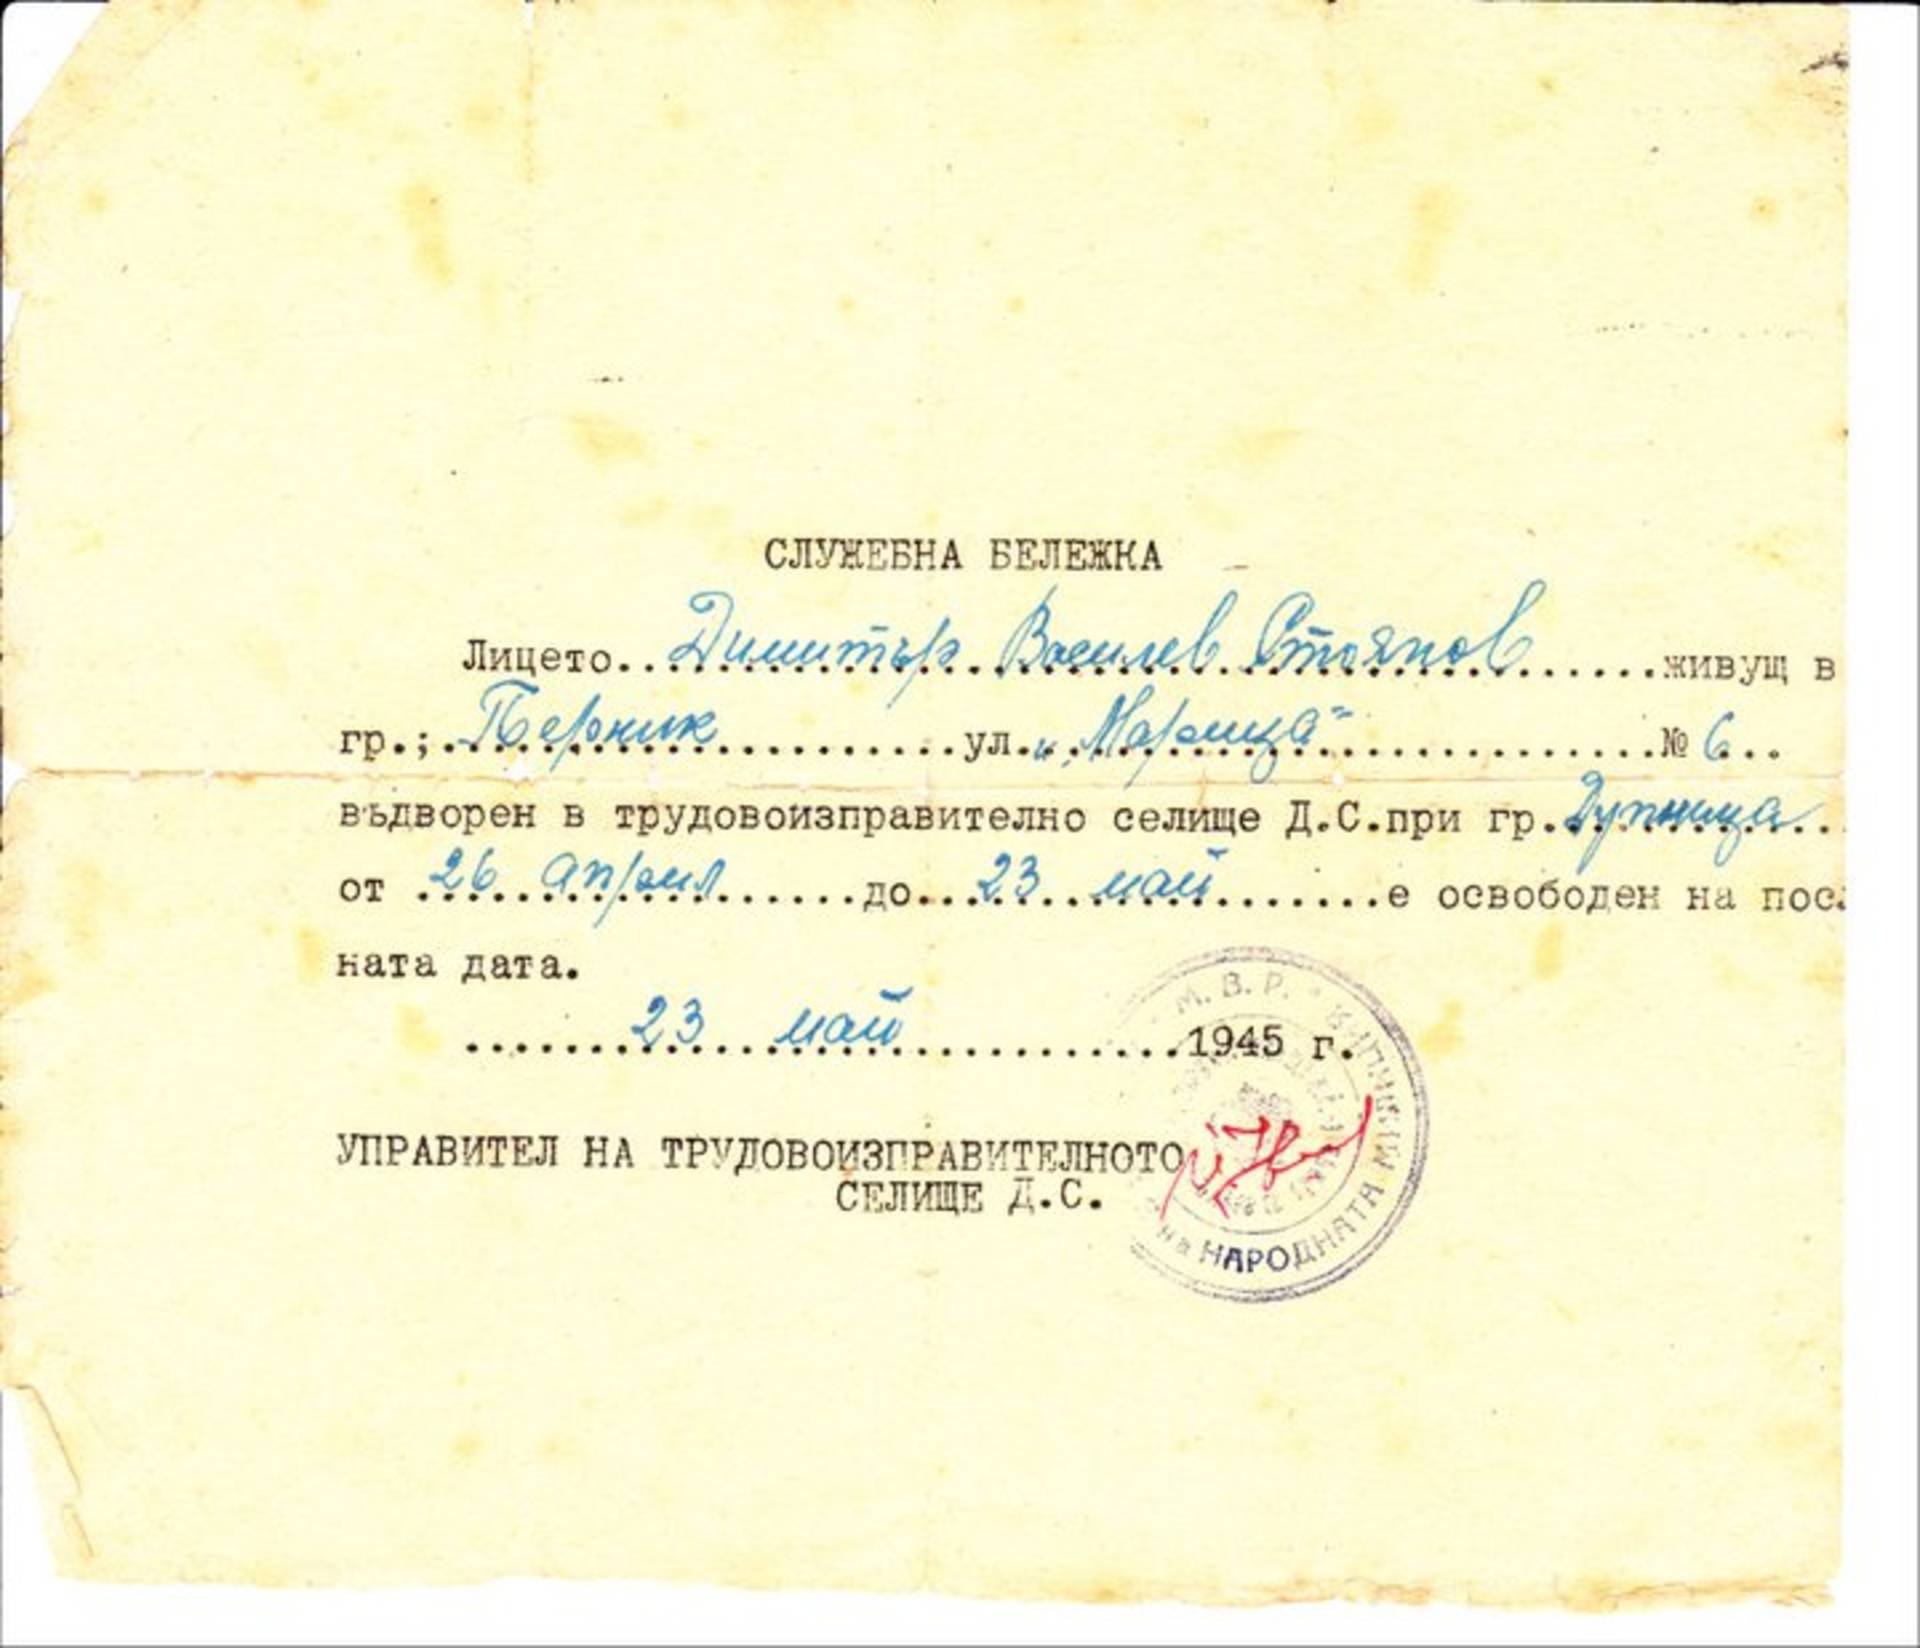 СЛУЖЕБНА БЕЛЕЖКА
Лицето...Димитър Василев Стоянов......живущ в
гр.;.Перник............ул."Марица"............№ 6...
въдворен в трудовоизправително селище Д.С.при гр.Дупница..
от .26 април......до..23 май.......е освободен на посл
ната дата.
......23 май...........1945 г.
УПРАВИТЕЛ НА ТРУДОВОИЗПРАВИТЕЛНОТО
СЕЛИЩЕ Д.С.
М. В. Р. * на НАРОДНАТА МИЛИЦИЯ